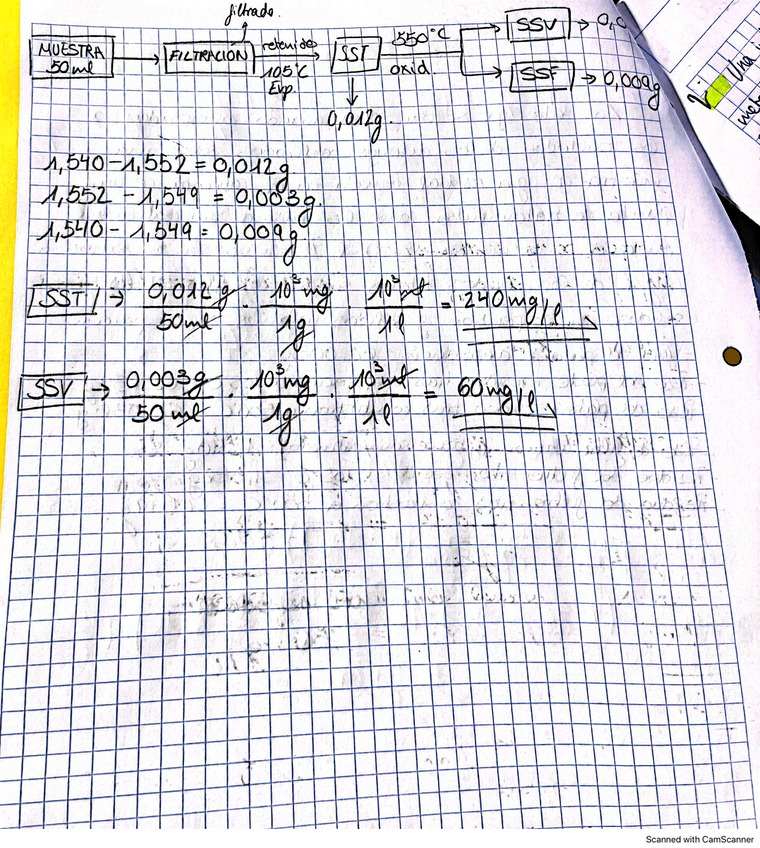 filtrado.
MUESTRA 50ml → FILTRACIÓN retenido 105°C Evp. → SST 550°C oxid. → SSV → 0,0
SSF → 0,009g
0,012g.
1,540 - 1,552 = 0,012g.
1,552 - 1,549 = 0,003g.
1,540 - 1,549 = 0,009g
SST → 0,012 g / 50ml · 10³ mg / 1g · 10³ ml / 1l = 240 mg/l
SSV → 0,003g / 50 ml · 10³ mg / 1g · 10³ ml / 1l = 60 mg/l
Una
Scanned with CamScanner